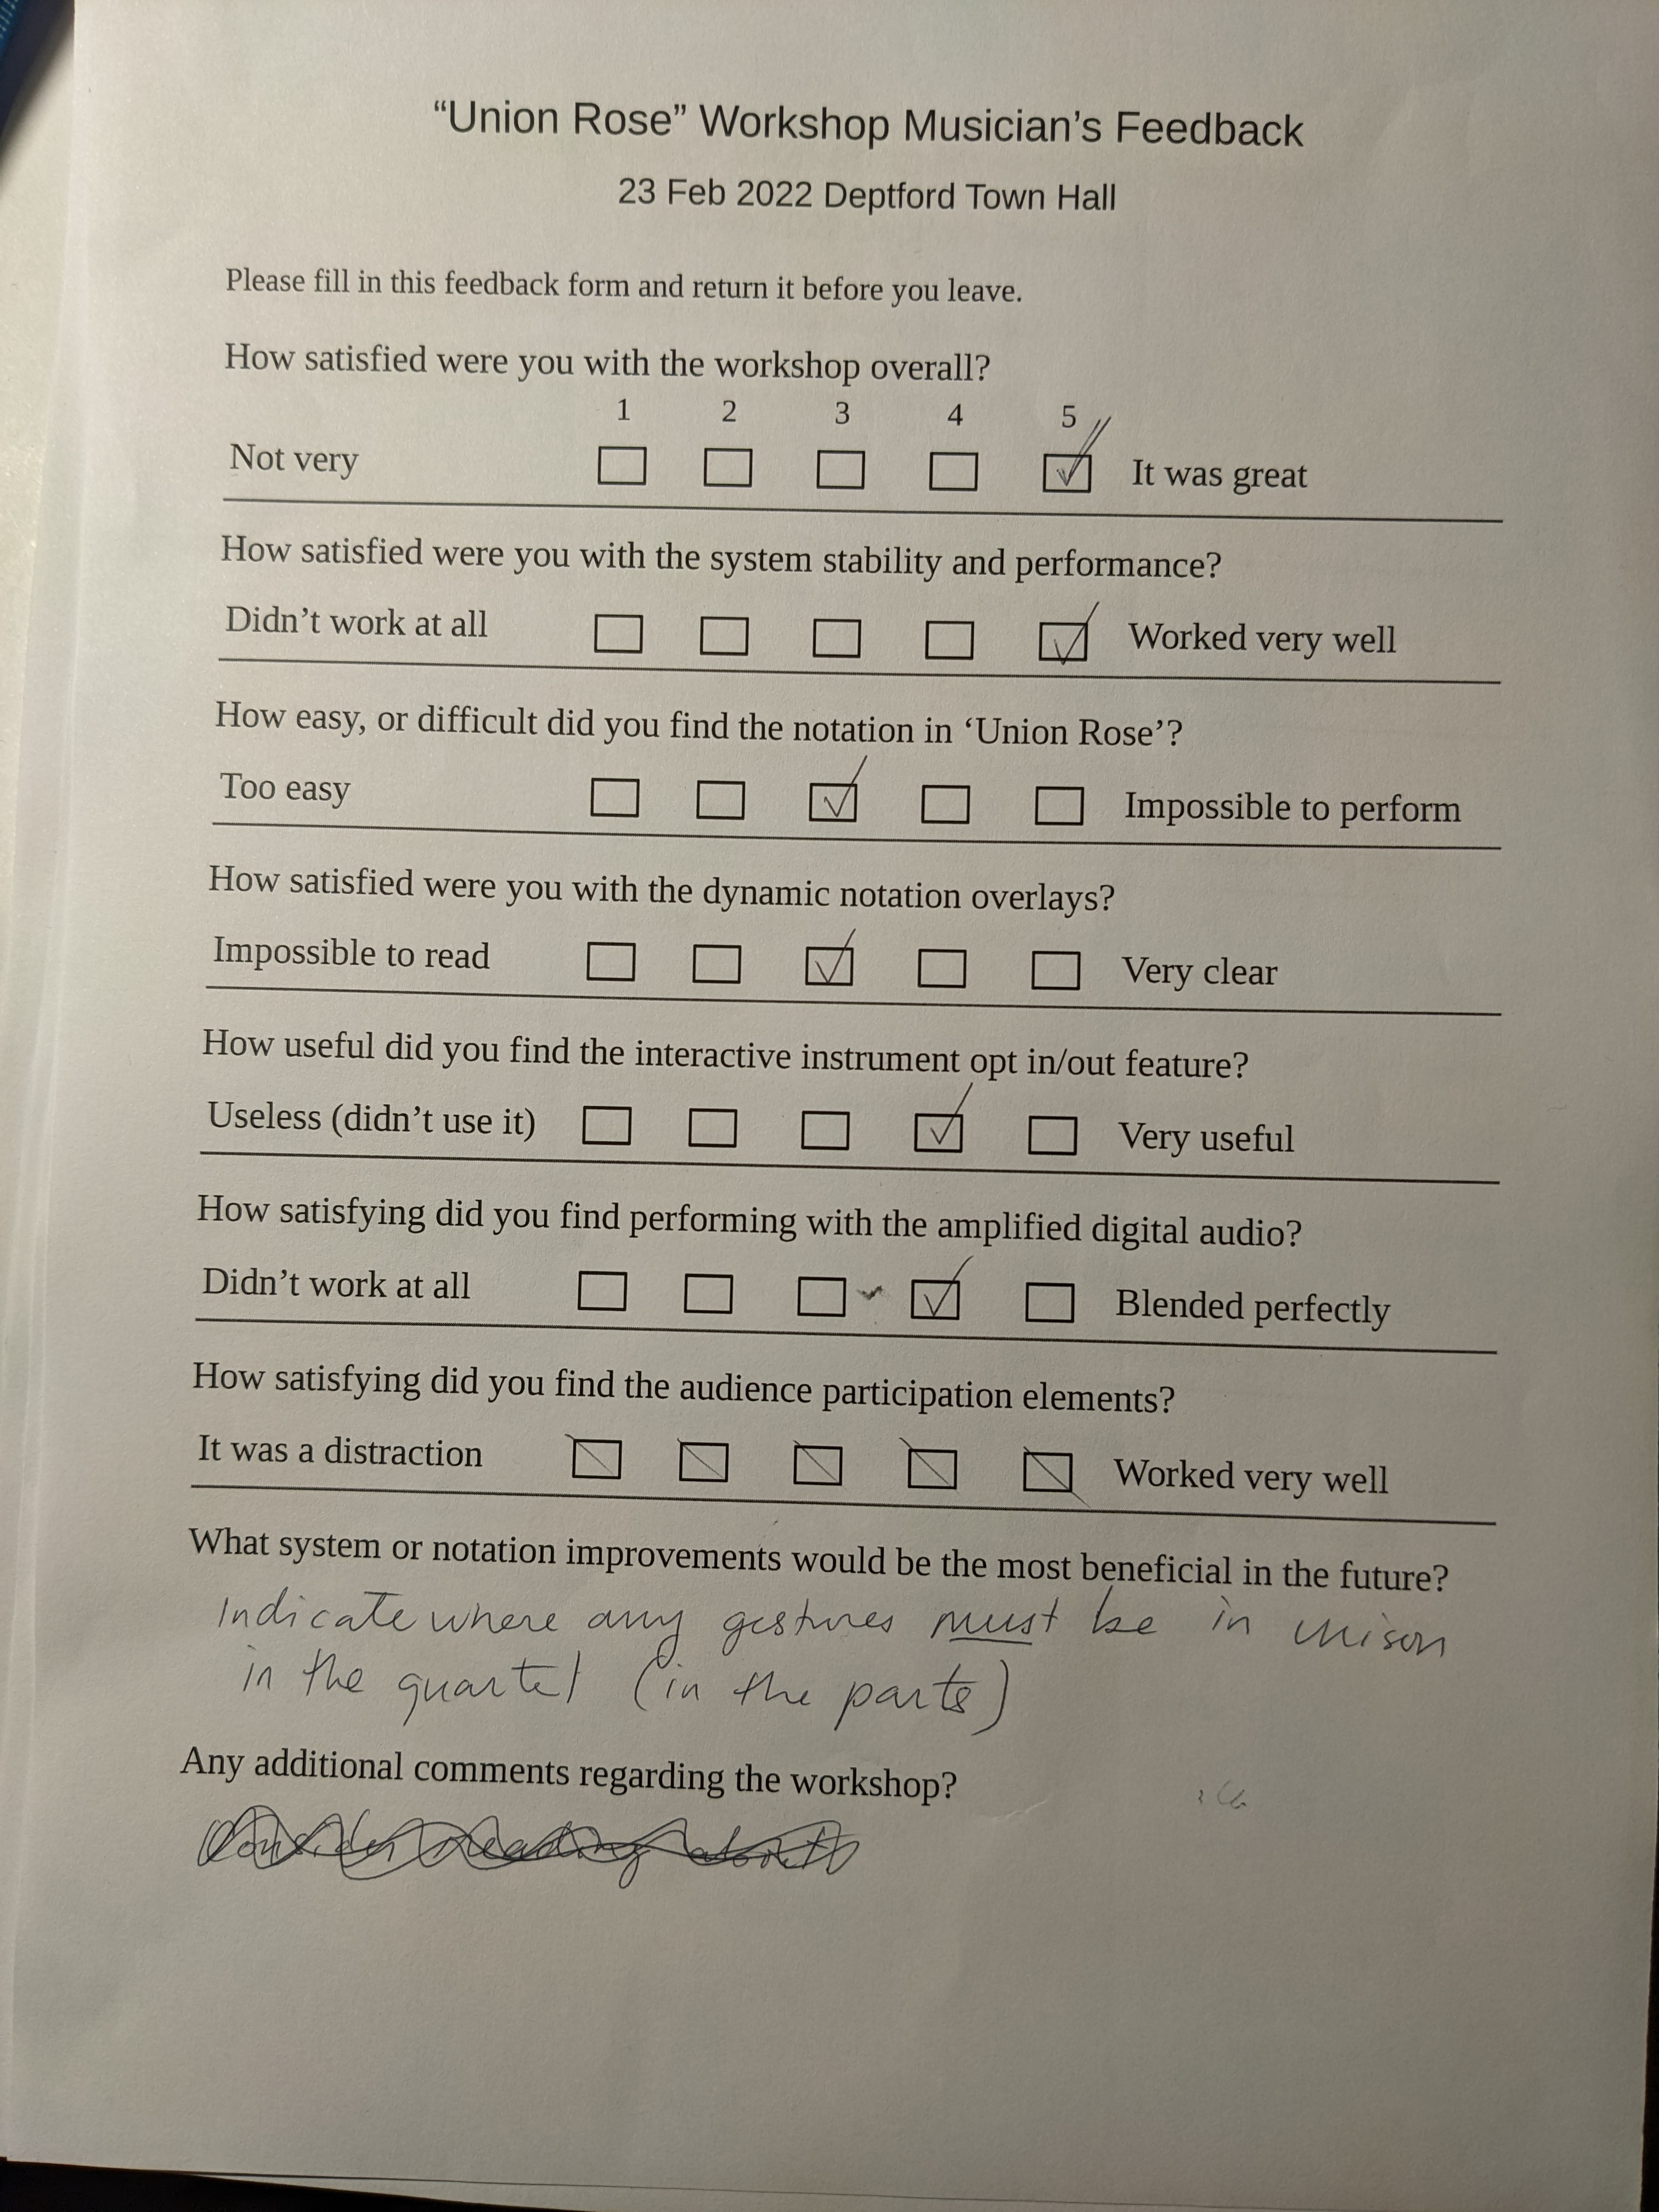 “Union Rose” Workshop Musician’s Feedback
23 Feb 2022 Deptford Town Hall
Please fill in this feedback form and return it before you leave.
How satisfied were you with the workshop overall?
1 2 3 4 5
Not very It was great
How satisfied were you with the system stability and performance?
Didn’t work at all Worked very well
How easy, or difficult did you find the notation in ‘Union Rose’?
Too easy Impossible to perform
How satisfied were you with the dynamic notation overlays?
Impossible to read Very clear
How useful did you find the interactive instrument opt in/out feature?
Useless (didn’t use it) Very useful
How satisfying did you find performing with the amplified digital audio?
Didn’t work at all Blended perfectly
How satisfying did you find the audience participation elements?
It was a distraction Worked very well
What system or notation improvements would be the most beneficial in the future?
Indicate where any gestures must be in unison
in the quartet (in the parts)
Any additional comments regarding the workshop?